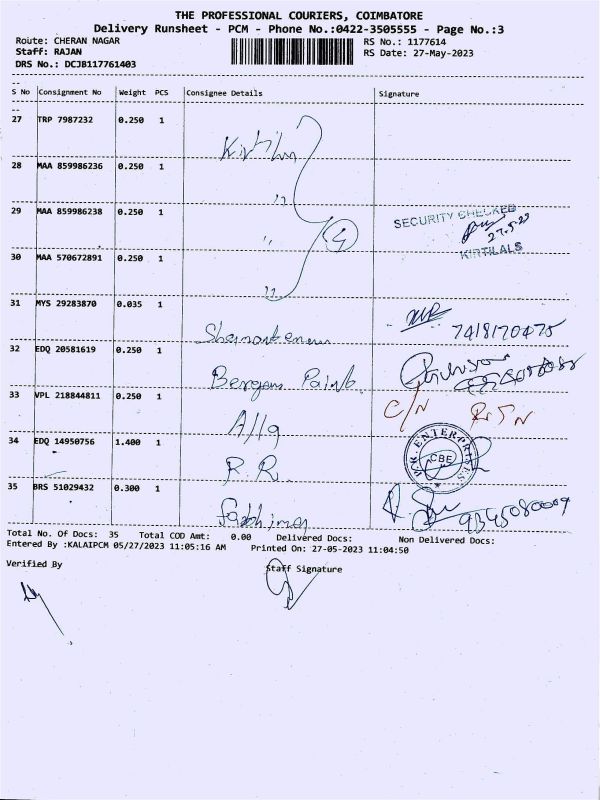 THE PROFESSIONAL COURIERS, COIMBATORE
Delivery Runsheet - PCM - Phone No.:0422-3505555 - Page No.:3
Route: CHERAN NAGAR
RS No.: 1177614
Staff: RAJAN
RS Date: 27-May-2023
DRS No.: DCJB117761403
S No Consignment No Weight PCS Consignee Details Signature
27 TRP 7987232 0.250 1
Kirtilal
28 MAA 859986236 0.250 1
"
29 MAA 859986238 0.250 1
SECURITY CHECKED
27.5.23
" 4
KIRTILALS
30 MAA 570672891 0.250 1
"
31 MYS 29283870 0.035 1
7418170475
32 EDQ 20581619 0.250 1
Berger Paints
33 VPL 218844811 0.250 1
C/N RTN
34 EDQ 14950756 1.400 1
V.R. ENTERPRISES
CBE
R.R.
35 BRS 51029432 0.300 1
Total No. Of Docs: 35 Total COD Amt: 0.00 Delivered Docs: Non Delivered Docs:
Entered By :KALAIPCM 05/27/2023 11:05:16 AM Printed On: 27-05-2023 11:04:50
Verified By
Staff Signature